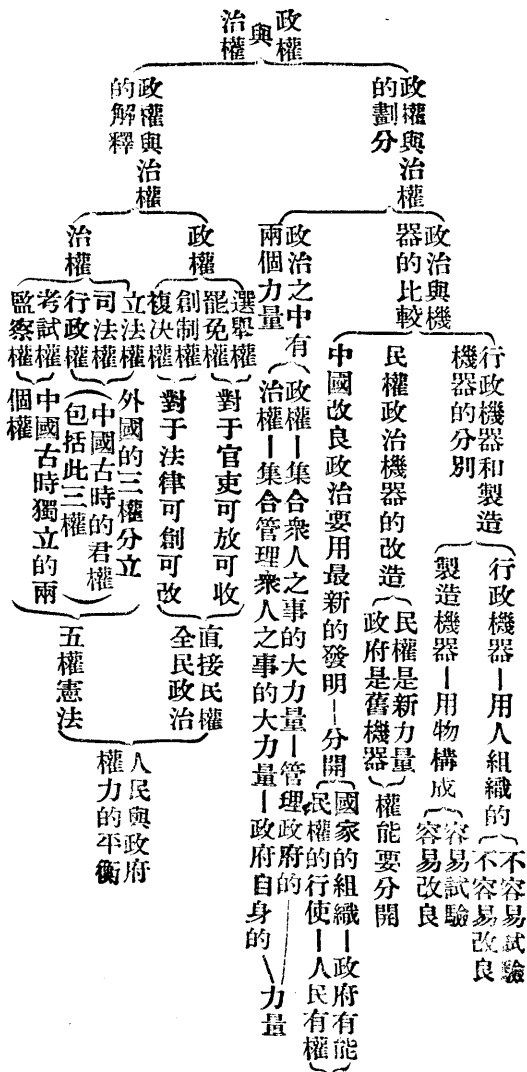 政權
與
治權
政權與治權
的劃分
政治與機
器的比較
行政機器和製造
機器的分別
行政機器—用人組織的
不容易試驗
不容易改良
製造機器—用物構成
容易試驗
容易改良
民權政治機器的改造
民權是新力量
政府是舊機器
權能要分開
中國改良政治要用最新的發明—分開
國家的組織—政府有能
民權的行使—人民有權
政治之中有
兩個力量
政權—集合衆人之事的大力量—管理政府的
治權—集合管理衆人之事的大力量—政府自身的
力量
政權與治權
的解釋
政權
選舉權
罷免權
對于官吏可放可收
創制權
複決權
對于法律可創可改
直接民權
全民政治
治權
立法權
司法權
行政權
外國的三權分立
(中國古時的君權
包括此三權)
考試權
監察權
中國古時獨立的兩
個權
五權憲法
人民與政府
權力的平衡